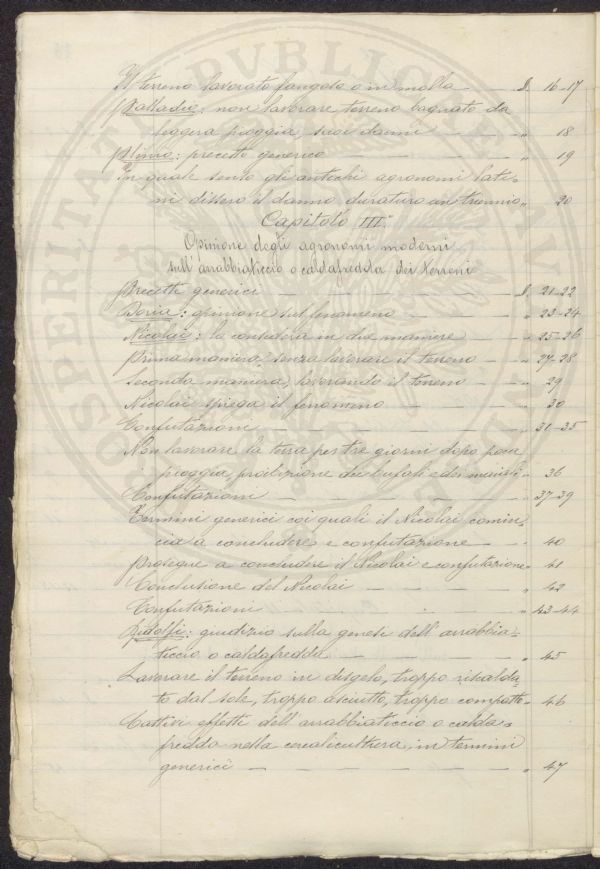 Il terreno lavorato fangoso o in molla — § 16-17
Palladio: non lavorare terreno bagnato da
leggera pioggia, suoi danni — " 18
Plinio: precetto generico — " 19
In quale senso gli antichi agronomi lati-
ni dissero il danno duraturo un triennio " 20
Capitolo III°
Opinione degli agronomi moderni
sull'arrabbiaticcio o caldafredda dei terreni
Precetti generici — § 21-22
Doria: opinione sul fenomeno — " 23-24
Nicolai: la considera in due maniere — " 25-26
Prima maniera, senza lavorare il terreno — " 27-28
Seconda maniera, lavorando il terreno — " 29
Nicolai spiega il fenomeno — " 30
Confutazioni — " 31-35
Non lavorare la terra per tre giorni dopo poca
pioggia, proibizione dei bufali e dei maiali " 36
Confutazioni — " 37-39
Termini generici coi quali il Nicolai comin-
cia a concludere e confutazione — " 40
Prosegue a concludere il Nicolai e confutazione " 41
Conclusione del Nicolai — " 42
Confutazioni — " 43-44
Ridolfi: giudizio sulla genesi dell'arrabbia-
ticcio o caldafredda — " 45
Lavorare il terreno in disgelo, troppo riscalda-
to dal sole, troppo asciutto, troppo compatto " 46
Cattivi effetti dell'arrabbiaticcio o calda-
fredda nella cerealicultura, in termini
generici — " 47